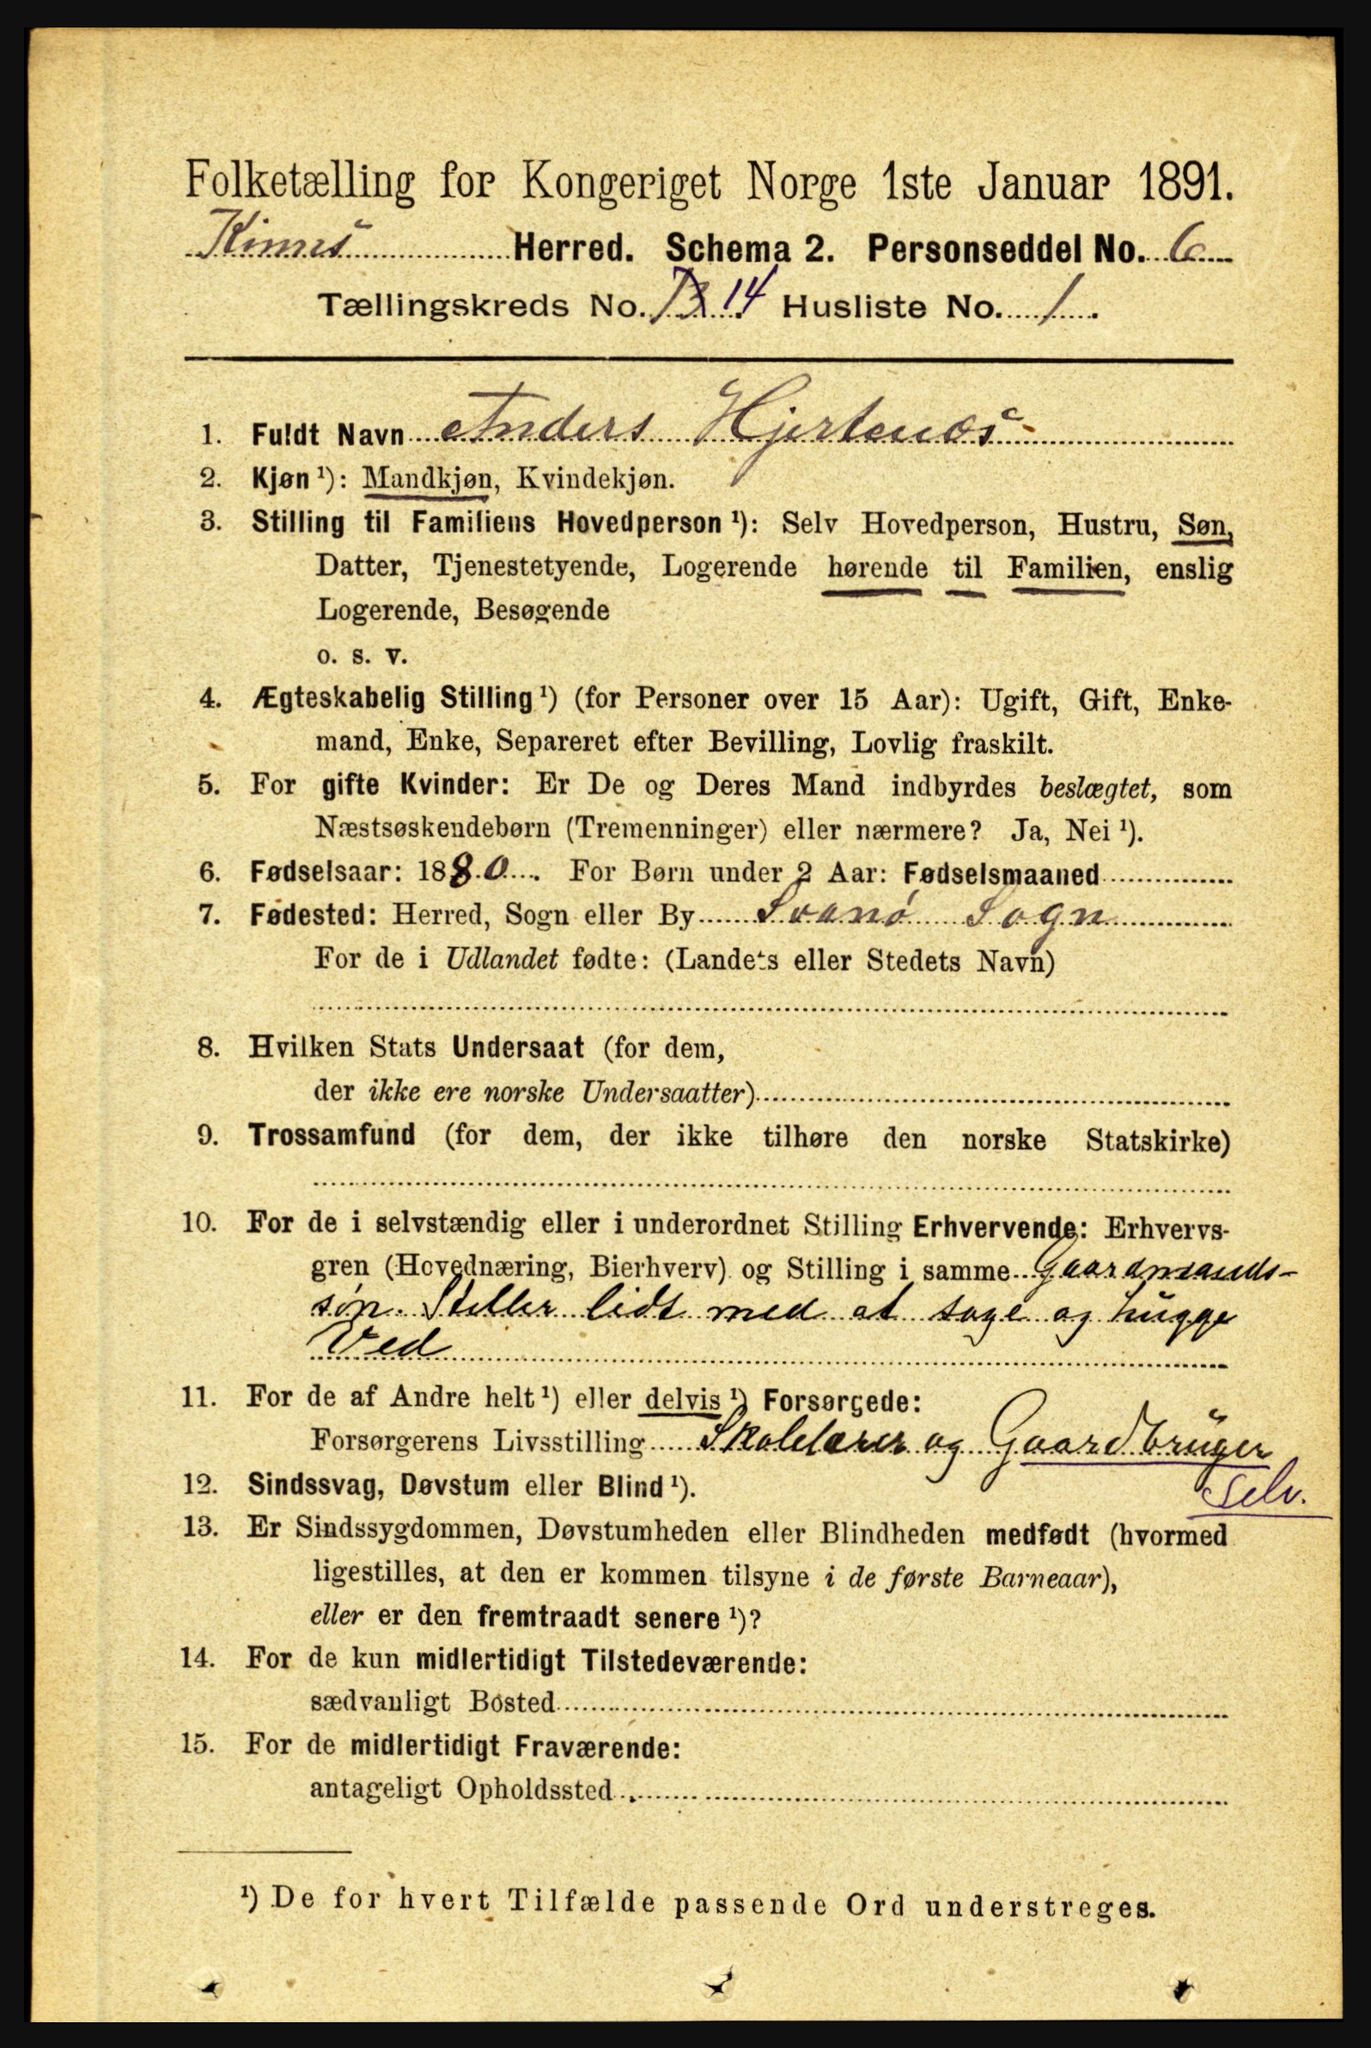 Folketælling for Kongeriget Norge 1ste Januar 1891.
Kinns Herred. Schema 2. Personseddel No. 6
Tællingskreds No. 13 14 Husliste No. 1
1. Fuldt Navn Anders Hjertenæs
2. Kjøn ¹): Mandkjøn, Kvindekjøn.
3. Stilling til Familiens Hovedperson ¹): Selv Hovedperson, Hustru, Søn,
Datter, Tjenestetyende, Logerende hørende til Familien, enslig
Logerende, Besøgende
o. s. v.
4. Ægteskabelig Stilling ¹) (for Personer over 15 Aar): Ugift, Gift, Enke-
mand, Enke, Separeret efter Bevilling, Lovlig fraskilt.
5. For gifte Kvinder: Er De og Deres Mand indbyrdes beslægtet, som
Næstsøskendebørn (Tremenninger) eller nærmere? Ja, Nei ¹).
6. Fødselsaar: 1880. For Børn under 2 Aar: Fødselsmaaned
7. Fødested: Herred, Sogn eller By Svanø Sogn
For de i Udlandet fødte: (Landets eller Stedets Navn)
8. Hvilken Stats Undersaat (for dem,
der ikke ere norske Undersaatter)
9. Trossamfund (for dem, der ikke tilhøre den norske Statskirke)
10. For de i selvstændig eller i underordnet Stilling Erhvervende: Erhvervs-
gren (Hovednæring, Bierhverv) og Stilling i samme Gaardmands-
søn. Steller lidt med at sage og hugge
Ved
11. For de af Andre helt ¹) eller delvis ¹) Forsørgede:
Forsørgerens Livsstilling Skolelærer og Gaardbruger
Selv.
12. Sindssvag, Døvstum eller Blind ¹).
13. Er Sindssygdommen, Døvstumheden eller Blindheden medfødt (hvormed
ligestilles, at den er kommen tilsyne i de første Barneaar),
eller er den fremtraadt senere ¹)?
14. For de kun midlertidigt Tilstedeværende:
sædvanligt Bosted
15. For de midlertidigt Fraværende:
antageligt Opholdssted
¹) De for hvert Tilfælde passende Ord understreges.